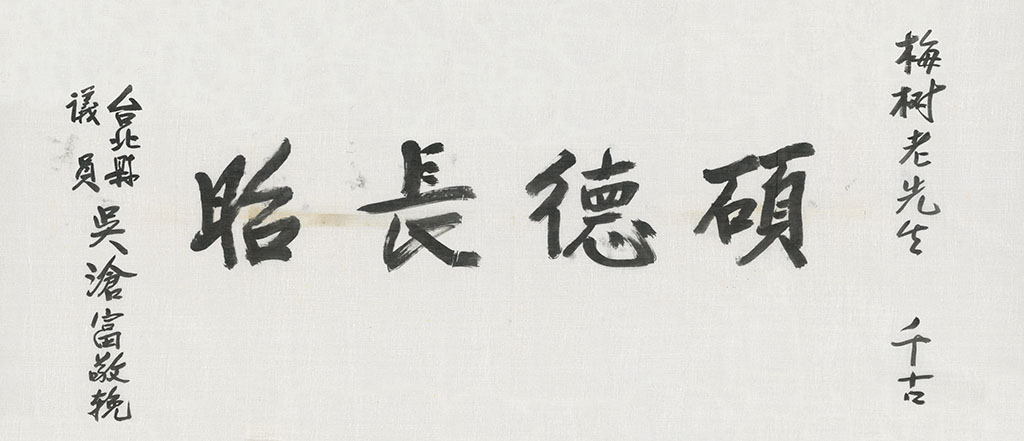 梅树老先生 千古
碩德長昭
台北縣議員 吳滄富敬輓